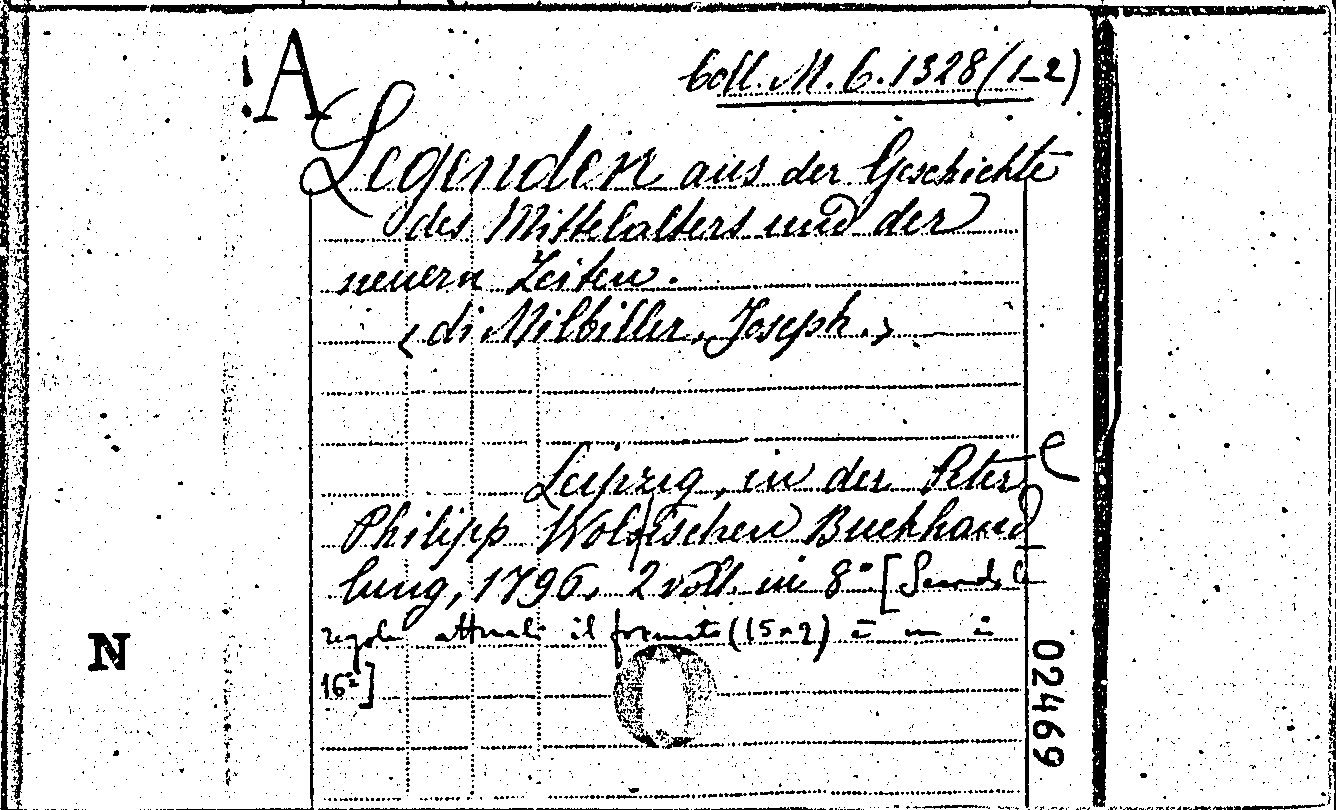 A
Coll. M. 6. 1328 (1-2)
Legenden aus der Geschichte
des Mittelalters und der
neuern Zeiten.
(di Milbiller, Joseph.)
Leipzig, in der Peter
Philipp Wolfischen Buchhand
lung, 1796, 2 voll. in 8° [Secondo le
regole attuali il formato (15×9) è un in
16°]
N
02469